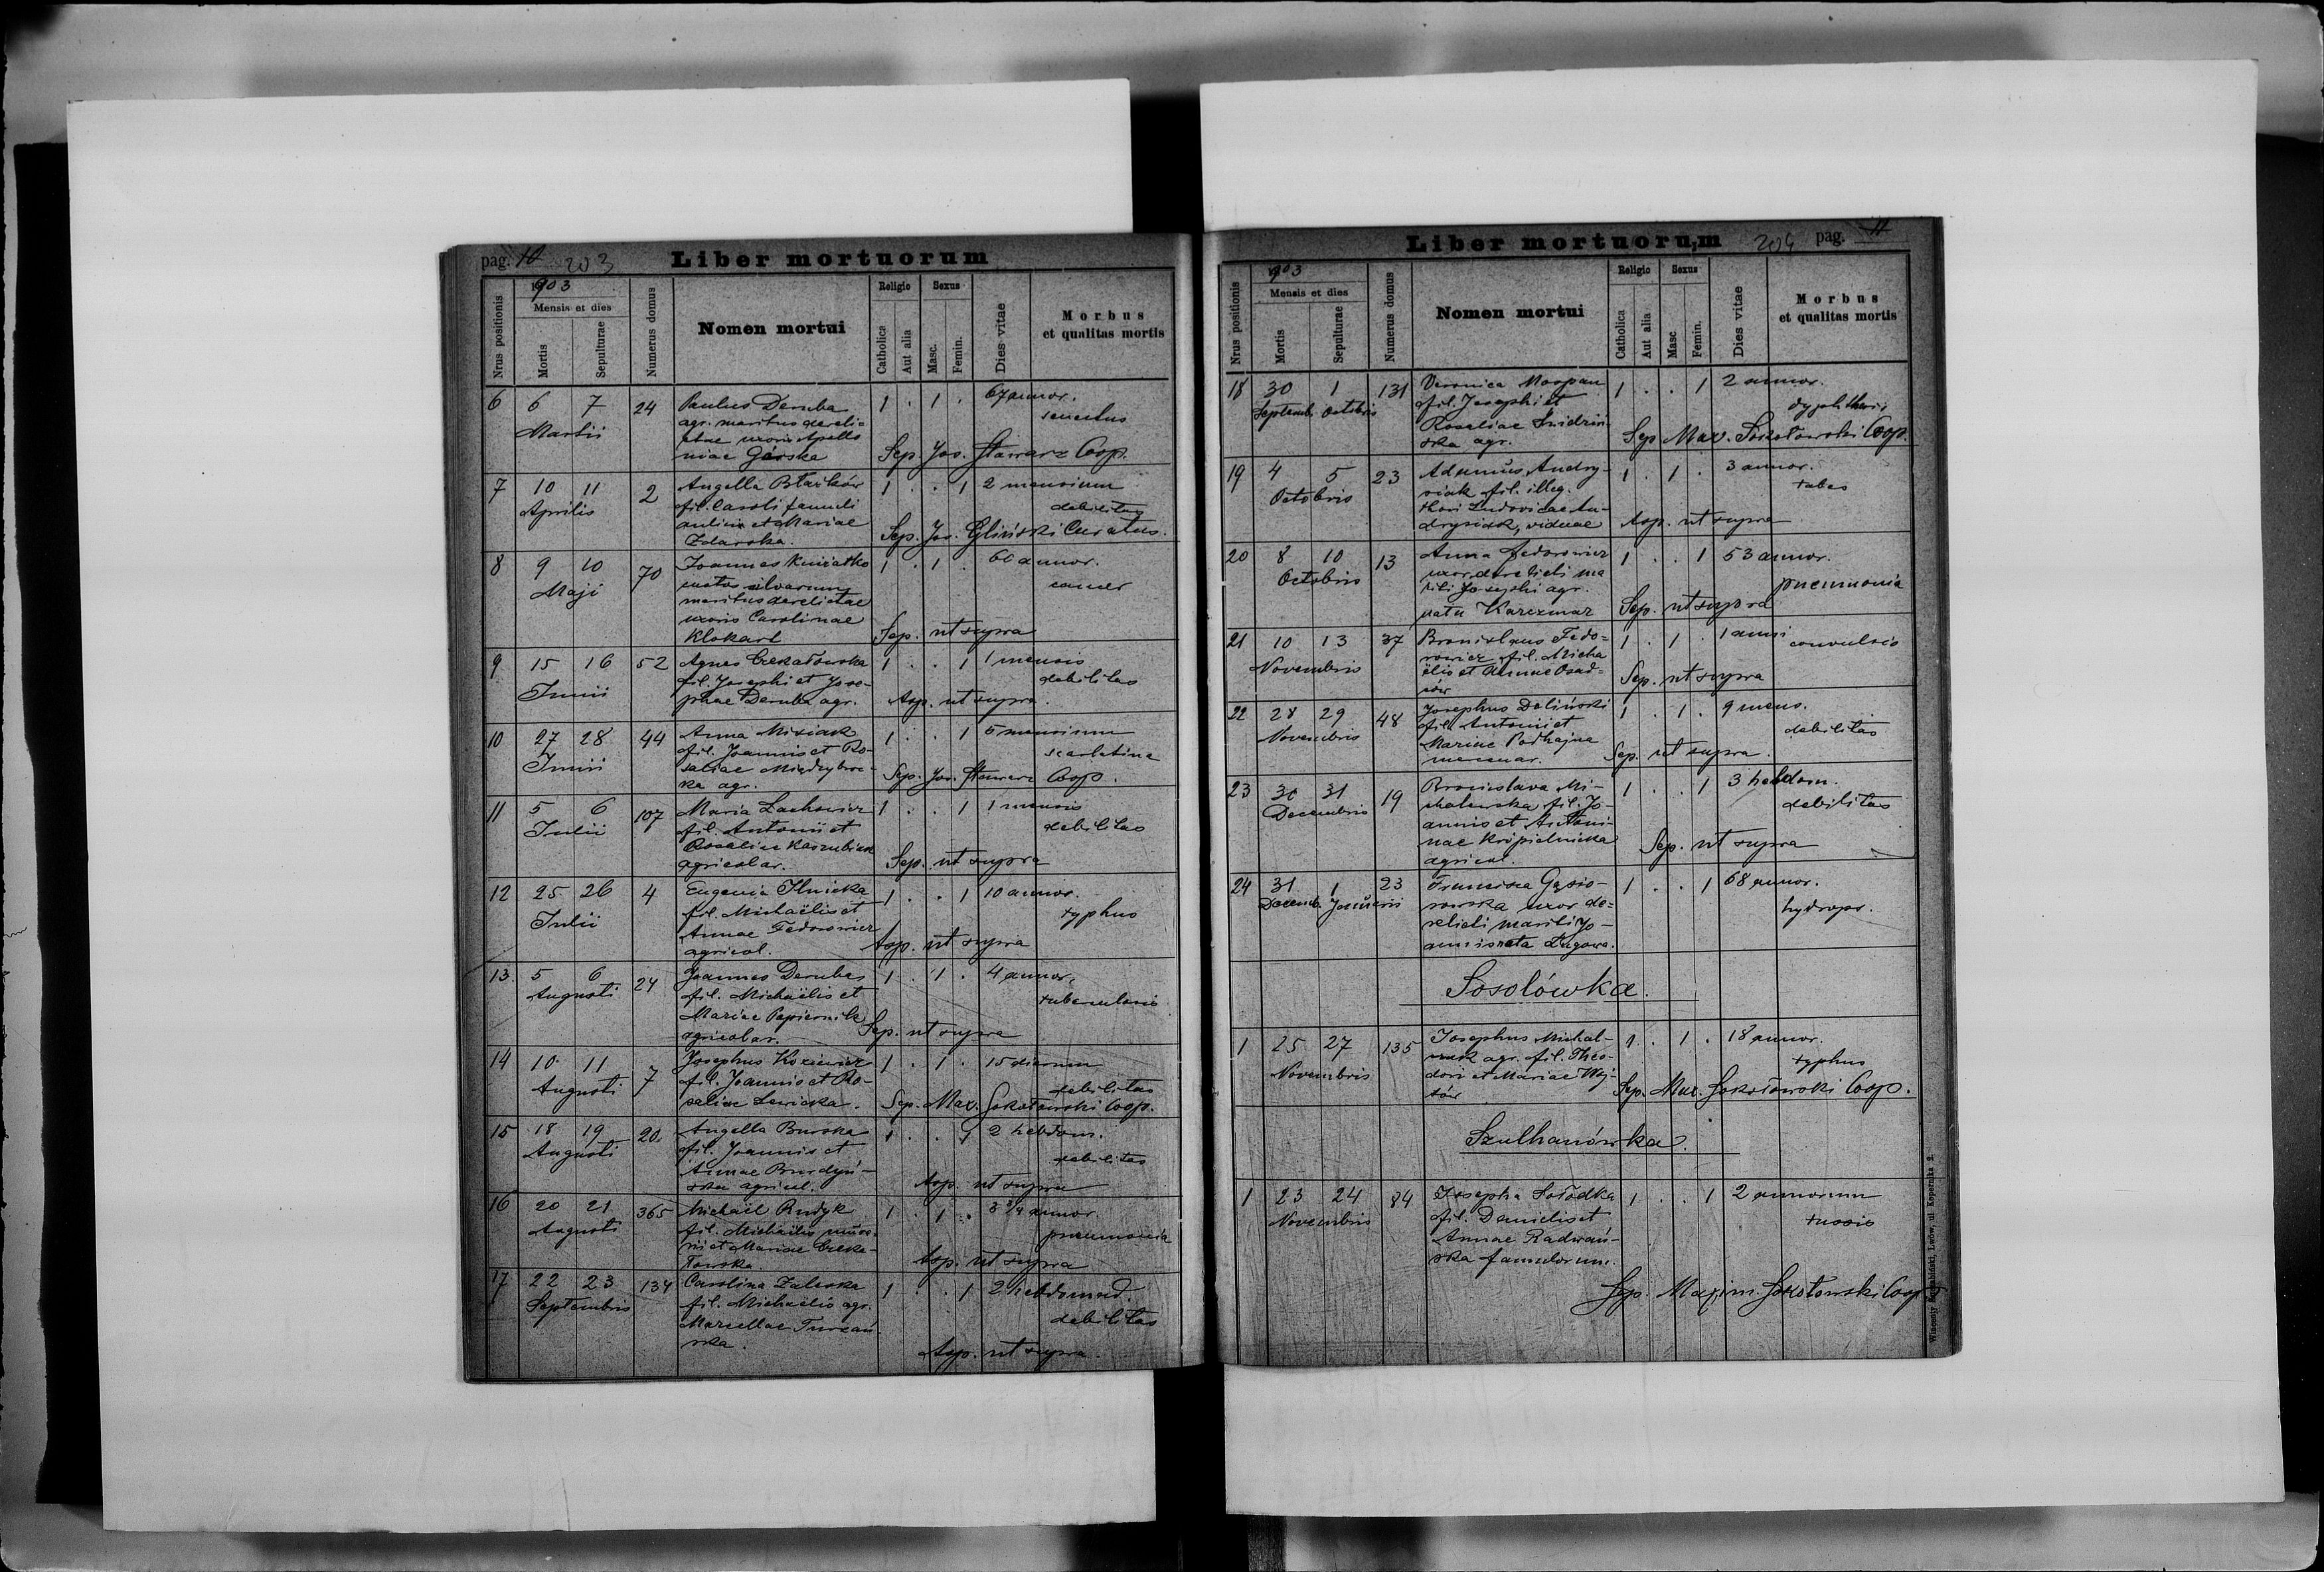 pag. 10 203 Liber mortuorum
Nrus positionis
1903
Mensis et dies
Mortis
Sepulturae
Numerus domus
Nomen mortui
Religio
Catholica
Aut alia
Sexus
Masc.
Femin.
Dies vitae
Morbus
et qualitas mortis
6 6 7 24 Paulus Deruba 1 . 1 . 67 annor.
Martii agr. maritus dereli- senectus
ctae uxoris Apollo
niae Górska Sep. Jos. Stawarz Coop.
7 10 11 2 Angella Błażków 1 . . 1 2 mensium
Aprilis fil. Caroli famuli debilitas
aulici et Mariae
Zdarska. Sep. Jos. Gliński Curatus.
8 9 10 70 Joannes Kwiatko 1 . 1 . 60 annor.
Maji custos silvarum cancer
maritus derelictae
uxoris Carolinae
Klokart Sep. ut supra
9 15 16 52 Agnes Czekałowska 1 . . 1 1 mensis
Junii fil. Josephi et Jose- debilitas
phae Deruba agr. Sep. ut supra.
10 27 28 44 Anna Misiak 1 . . 1 5 mensium
Junii fil. Joannis et Ro- scarlatina
saliae Międzybroc-
ka agr. Sep. Jos. Stawarz Coop.
11 5 6 107 Maria Lachowicz 1 . . 1 1 mensis
Julii fil. Antonii et debilitas
Rosaliae Kaszubiak
agricolar. Sep. ut supra
12 25 26 4 Eugenia Ilnicka 1 . . 1 10 annor.
Julii fil. Michaëlis et typhus
Annae Fedorowicz
agricol. Sep. ut supra
13 5 6 24 Joannes Deruba 1 . 1 . 4 annor.
Augusti fil. Michaëlis et tuberculosis
Mariae Papiernik
agricolar. Sep. ut supra
14 10 11 7 Josephus Koziewicz 1 . 1 . 15 dierum
Augusti fil. Joannis et Ro- debilitas
saliae Lewicka. Sep. Max. Sokołowski Coop.
15 18 19 20 Angella Burska 1 . . 1 2 hebdom.
Augusti fil. Joannis et debilitas
Annae Burdyń-
ska agricol. Sep. ut supra
16 20 21 365 Michaël Rudyk 1 . 1 . 3 3/4 annor.
Augusti fil. Michaëlis pneumonia
et Mariae Czeka-
łowska. Sep. ut supra
17 22 23 134 Carolina Zaleska 1 . . 1 2 hebdomad.
Septembris fil. Michaëlis agr. debilitas
Marcellae Turzań
ska. Sep. ut supra.
Liber mortuorum 204 pag. 11
Nrus positionis
1903
Mensis et dies
Mortis
Sepulturae
Numerus domus
Nomen mortui
Religio
Catholica
Aut alia
Sexus
Masc
Femin.
Dies vitae
Morbus
et qualitas mortis
18 30 1 131 Veronica 1 . . 1 2 annor.
Septemb. Octobris fil. Josephi et
Rosaliae
ska agr. Sep. Max. Sokołowski Coop.
19 4 5 23 Adamus Andry- 1 . 1 . 3 annor.
Octobris siak fil. illeg. tabes
thori Ludovicae An-
drysiak, viduae Sep. ut supra
20 8 10 13 Anna Fedorowicz 1 . . 1 53 annor.
Octobris uxor derelicti ma pneumonia
riti Josephi agr.
nata Karczmar Sep. ut supra
21 10 13 37 Bronislaus Fedo- 1 . 1 . 1 anni convulsio
Novembris rowicz fil. Micha
ëlis et Annae Osad-
ców Sep. ut supra
22 28 29 48 Josephus Doliński 1 . 1 . 9 mens.
Novembris fil. Antonii et debilitas
Mariae Podhajna
mercenar. Sep. ut supra.
23 30 31 19 Bronislava Mi- 1 . . 1 3 hebdom.
Decembris chalewska fil. Jo- debilitas
annis et Antoni-
nae Kropielnicka
agricol. Sep. ut supra
24 31 1 23 Francisca Gąsio- 1 . . 1 68 annor.
Decemb. Januaris rowska uxor de- hydrops.
relicti mariti Jo-
annis nata Ługowa.
Sosolówka.
1 25 27 135 Josephus Michal- 1 . 1 . 18 annor.
Novembris czuk agr. fil. Theo- typhus
dori et Mariae Woj-
tów Sep. Max. Sokołowski Coop.
Szulhanówka.
1 23 24 84 Josepha Sołodka 1 . . 1 2 annorum
Novembris fil. Danielis et tussis
Annae Radwań-
ska famulorum.
Sep. Maxim. Sokołowski Coop